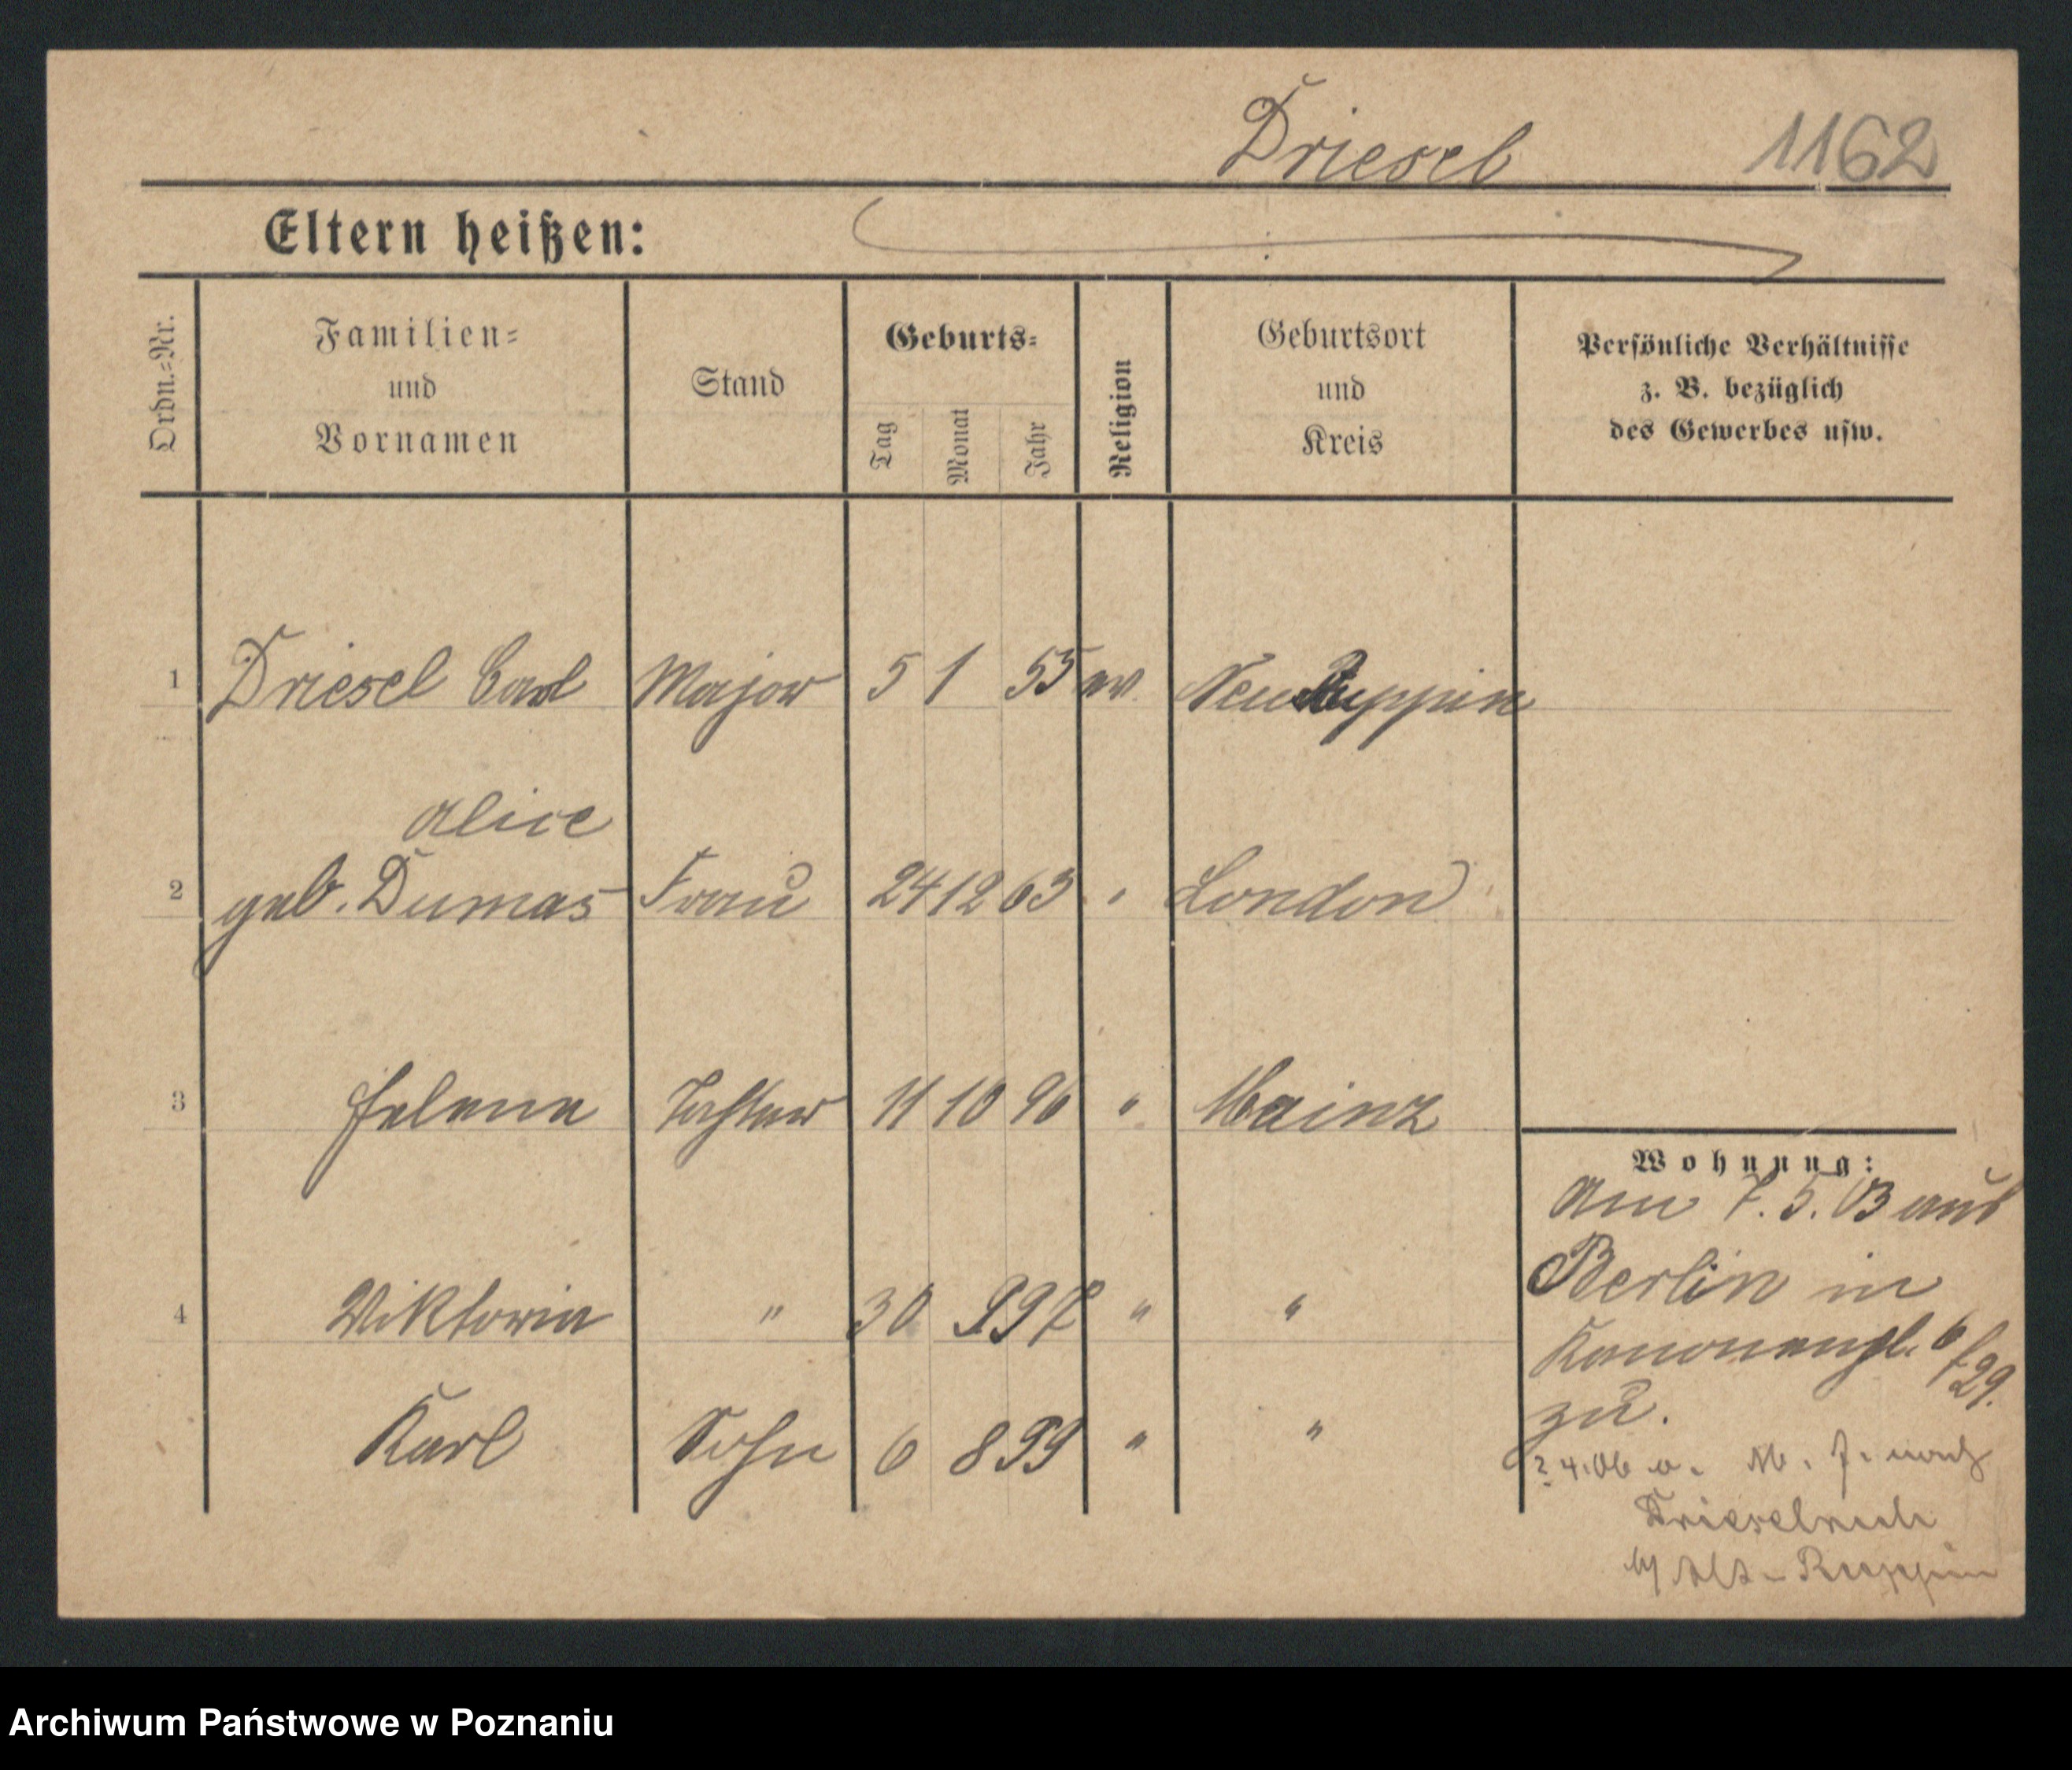 Driesel 1162
Eltern heißen:
Ordn.=Nr.
Familien=
und
Vornamen
Stand
Geburts=
Tag
Monat
Jahr
Religion
Geburtsort
und
Kreis
Persönliche Verhältnisse
z. B. bezüglich
des Gewerbes usw.
1 Driesel Carl Major 5 1 55 ev. Neu Ruppin
Alice
2 geb. Dumas Frau 24 12 63 " London
3 Helene Tochter 11 10 96 " Mainz
4 Viktoria " 30 9 97 " "
Karl Sohn 6 8 99 " "
Wohnung:
Am 7. 5. 03 aus
Berlin in
Kanonenpl. 6
zu.
4. 06 nach
by Alt-Ruppin
Archiwum Państwowe w Poznaniu